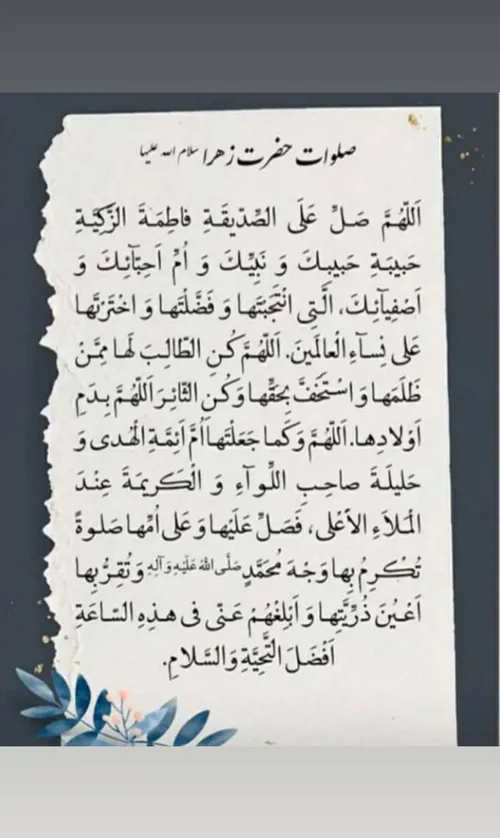 صلوات حضرت زهرا سلام الله علیها
اَللّهُمَّ صَلِّ عَلَی الصِّدّیقَةِ فاطِمَةَ الزَّکِیَّةِ
حَبیبَةِ حَبیبِكَ وَ نَبِیِّكَ وَ اُمِّ اَحِبّآئِكَ وَ
اَصْفِیآئِكَ، الَّتِی انْتَجَبْتَها وَ فَضَّلْتَها وَ اخْتَرْتَها
عَلی نِسآءِ الْعالَمینَ. اَللّهُمَّ کُنِ الطّالِبَ لَها مِمَّنْ
ظَلَمَها وَ اسْتَخَفَّ بِحَقِّها وَ کُنِ الثّائِرَ اَللّهُمَّ بِدَمِ
اَوْلادِها. اَللّهُمَّ وَ کَما جَعَلْتَها اُمَّ اَئِمَّةِ الْهُدی وَ
حَلیلَةَ صاحِبِ اللِّوآءِ وَ الْکَریمَةَ عِنْدَ
الْمَلَاءِ الْاَعْلی، فَصَلِّ عَلَیْها وَ عَلی اُمِّها صَلوةً
تُکْرِمُ بِها وَجْهَ مُحَمَّدٍ صَلَّی اللهُ عَلَیْهِ وَ آلِهِ وَ تُقِرُّ بِها
اَعْیُنَ ذُرِّیَّتِها وَ اَبْلِغْهُمْ عَنّی فی هذِهِ السّاعَةِ
اَفْضَلَ التَّحِیَّةِ وَ السَّلامِ.